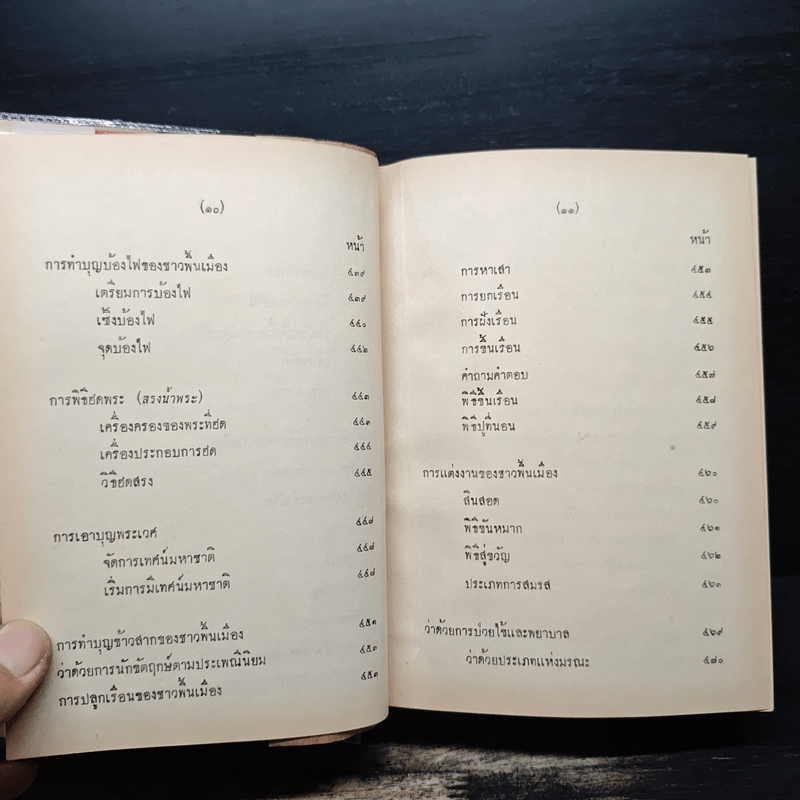 (๑๐)
หน้า
การทำบุญบ้องไฟของชาวพื้นเมือง ๔๓๙
เตรียมการบ้องไฟ ๔๓๙
เซิ้งบ้องไฟ ๔๔๐
จุดบ้องไฟ ๔๔๒
การพิธีฮดพระ (สรงน้ำพระ) ๔๔๓
เครื่องครองของพระที่ฮด ๔๔๓
เครื่องประกอบการฮด ๔๔๔
วิธีฮดสรง ๔๔๕
การเอาบุญพระเวศ ๔๔๗
จัดการเทศน์มหาชาติ ๔๔๗
เริ่มการมีเทศน์มหาชาติ ๔๔๗
การทำบุญข้าวสากของชาวพื้นเมือง ๔๕๑
ว่าด้วยการนักขัตฤกษ์ตามประเพณีนิยม ๔๕๓
การปลูกเรือนของชาวพื้นเมือง ๔๕๓
(๑๑)
หน้า
การหาเสา ๔๕๓
การยกเรือน ๔๕๔
การฝั่งเรือน ๔๕๕
การขึ้นเรือน ๔๕๖
คำถามคำตอบ ๔๕๗
พิธีขึ้นเรือน ๔๕๗
พิธีปูที่นอน ๔๕๙
การแต่งงานของชาวพื้นเมือง ๔๖๐
สินสอด ๔๖๐
พิธีขันหมาก ๔๖๑
พิธีสู่ขวัญ ๔๖๒
ประเภทการสมรส ๔๖๓
ว่าด้วยการป่วยไข้และพยาบาล ๔๖๙
ว่าด้วยประเภทแห่งมรณะ ๔๗๐